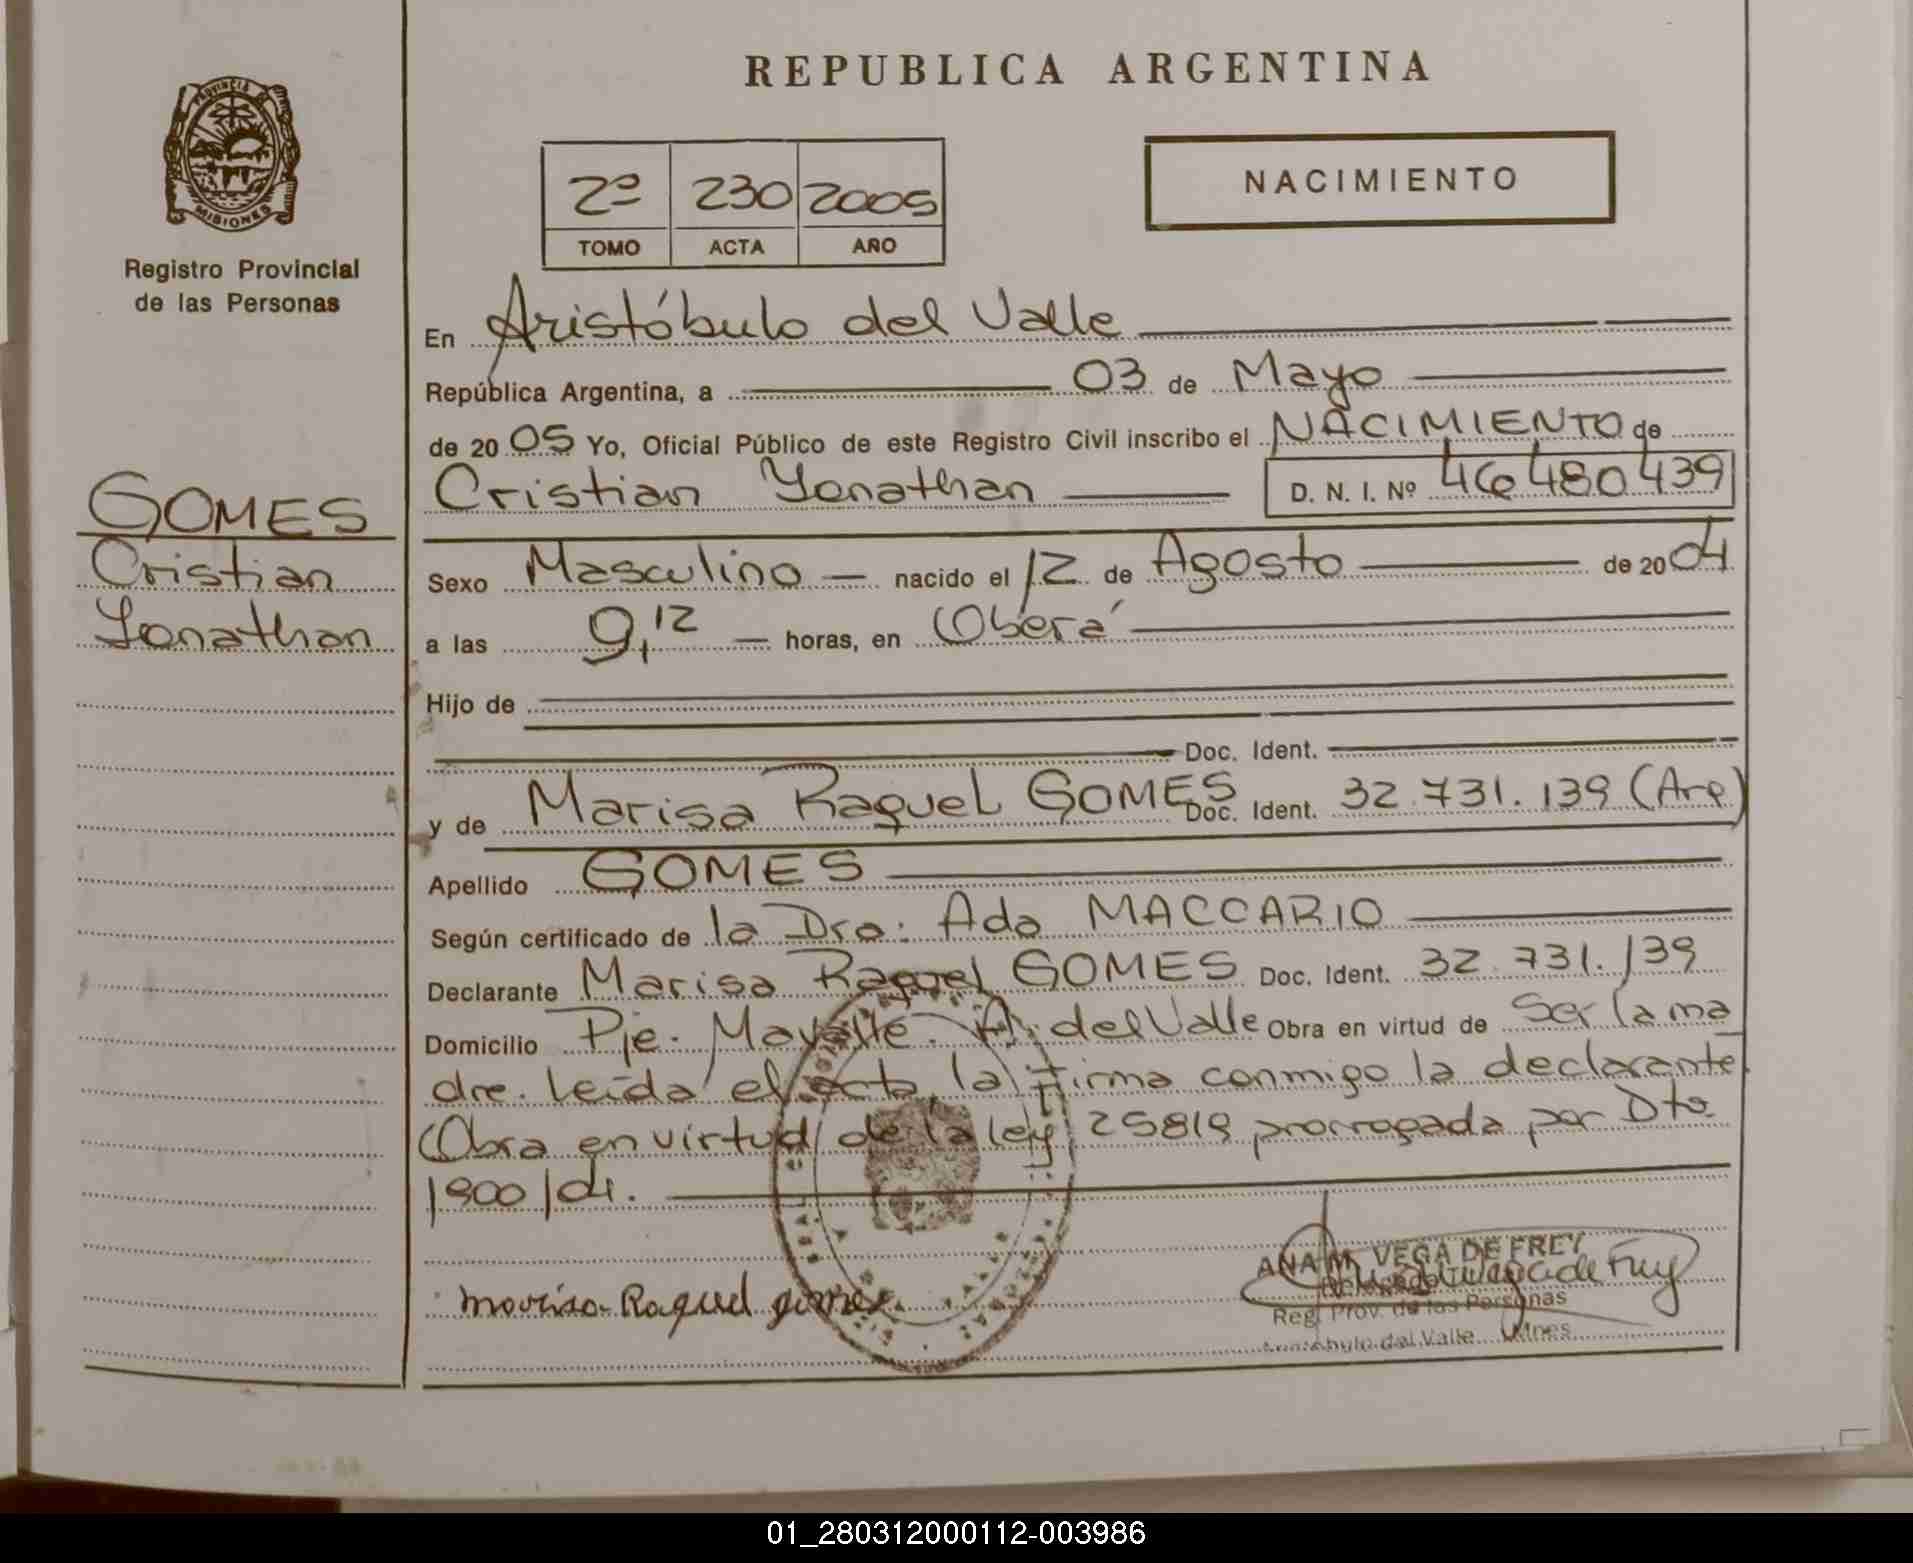 REPUBLICA ARGENTINA
PROVINCIA DE
MISIONES
Registro Provincial
de las Personas
2º 230 2005
TOMO ACTA AÑO
NACIMIENTO
En Aristóbulo del Valle
República Argentina, a 03 de Mayo
de 2005 Yo, Oficial Público de este Registro Civil inscribo el NACIMIENTO de
Cristian Yonathan D. N. I. Nº 46480439
GOMES
Cristian
Yonathan
Sexo Masculino nacido el 12 de Agosto de 2004
a las 9,12 horas, en Oberá
Hijo de
Doc. Ident.
y de Marisa Raquel GOMES Doc. Ident. 32.731.139 (Arg)
Apellido GOMES
Según certificado de la Dra: Ada MACCARIO
Declarante Marisa Raquel GOMES Doc. Ident. 32.731.139
Domicilio Pje. A. del Valle Obra en virtud de Ser la ma
dre. Leída el acta, la firma conmigo la declarante.
Obra en virtud de la ley 25819 prorrogada por Dto
1900/04.
Marisa Raquel gomes
ANA M. VEGA DE FREY
Reg. Prov. de las Personas
Aristóbulo del Valle Mnes.
01_280312000112-003986